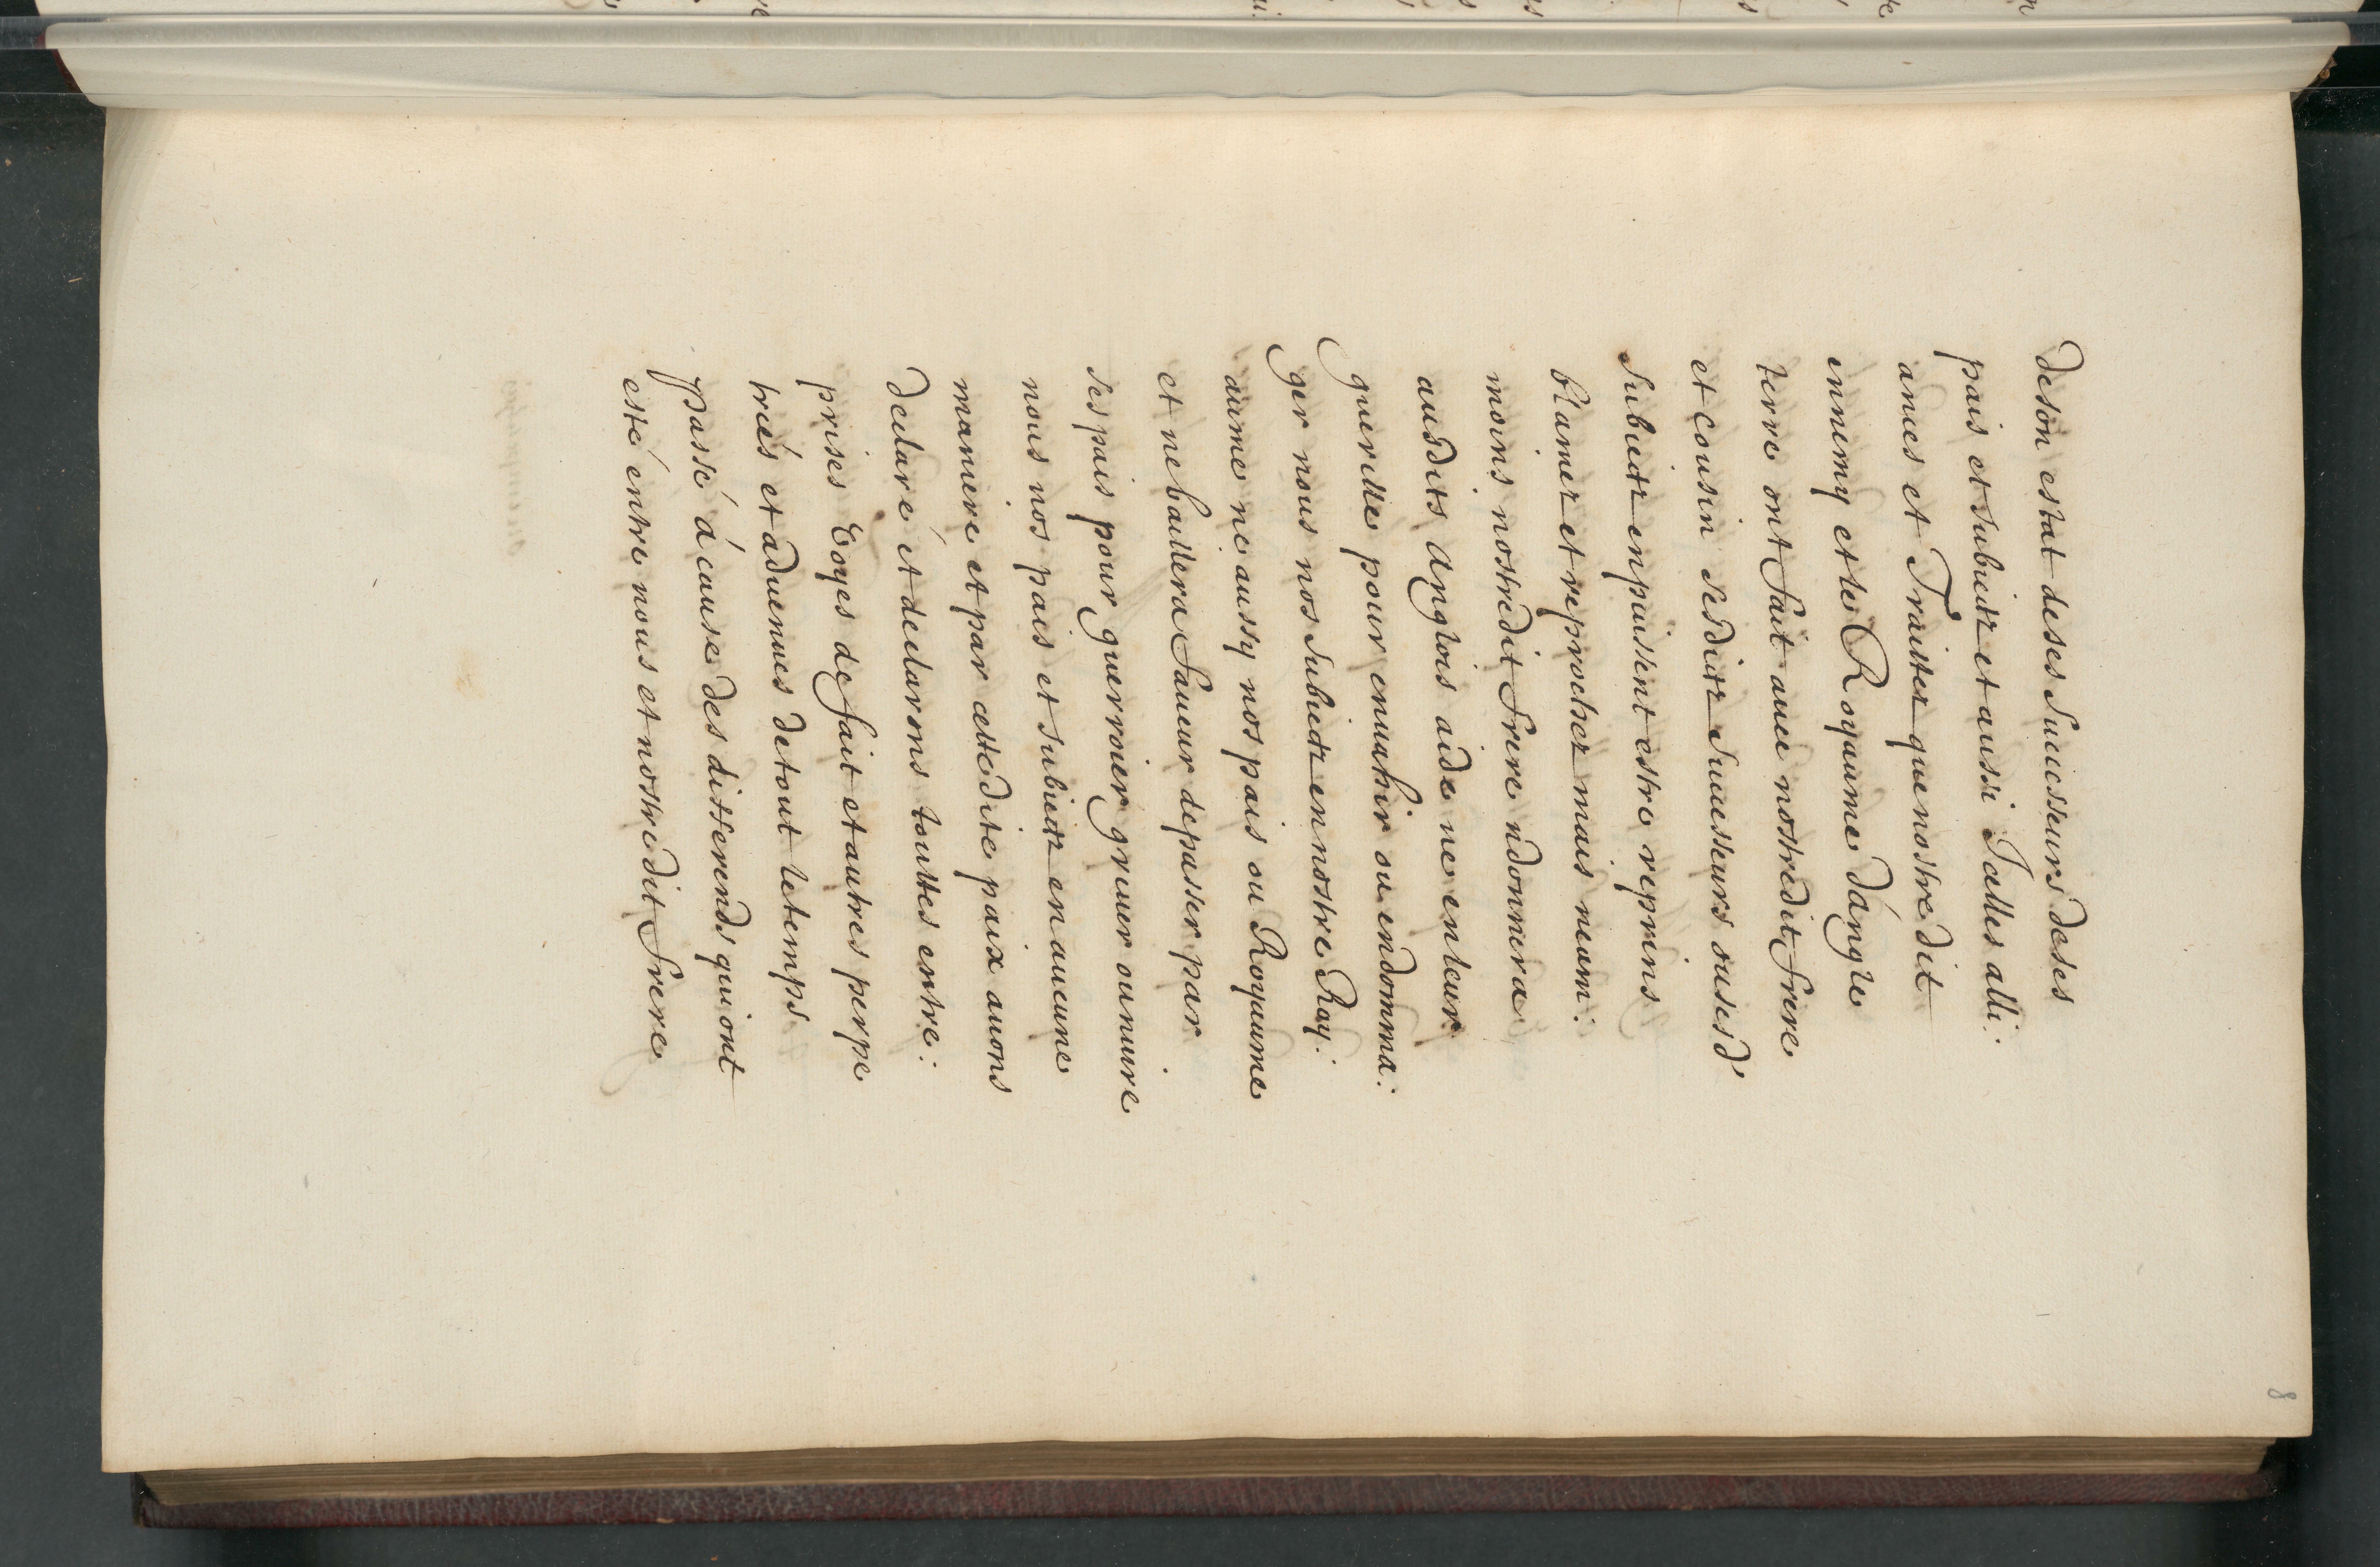 deson estat deses Successeurs deses
pais et subiectz et aussi Jcelles alli:
ances et Traittez que nostre dit
ennemy et le Royaume d'angle
terre ont fait auec nostredit frere
et cousin sesdictz Successeurs ousesd'
Subiectz enpuissent estre reprins
blamez et reprochez mais neam:
moins nostredit frere ndonnera
ausdits anglois aide ne enleur
querelle pour enuahir ou endomma:
ger nous nos subiectz en nostre Roy:
aume ne aussy nos pais ou Royaume
et nebaillera faueur depasser par
ses pais pour guerroier greuer ou nuire
nous nos pais et subiectz en aucune
maniere et par cestedite paix auons
declaré et declarons touttes entre:
prises Voyes defait et autres perpe
treés et aduenues detout letemps
passé a cause des differends qui ont
esté entre nous et nostredit frere
8